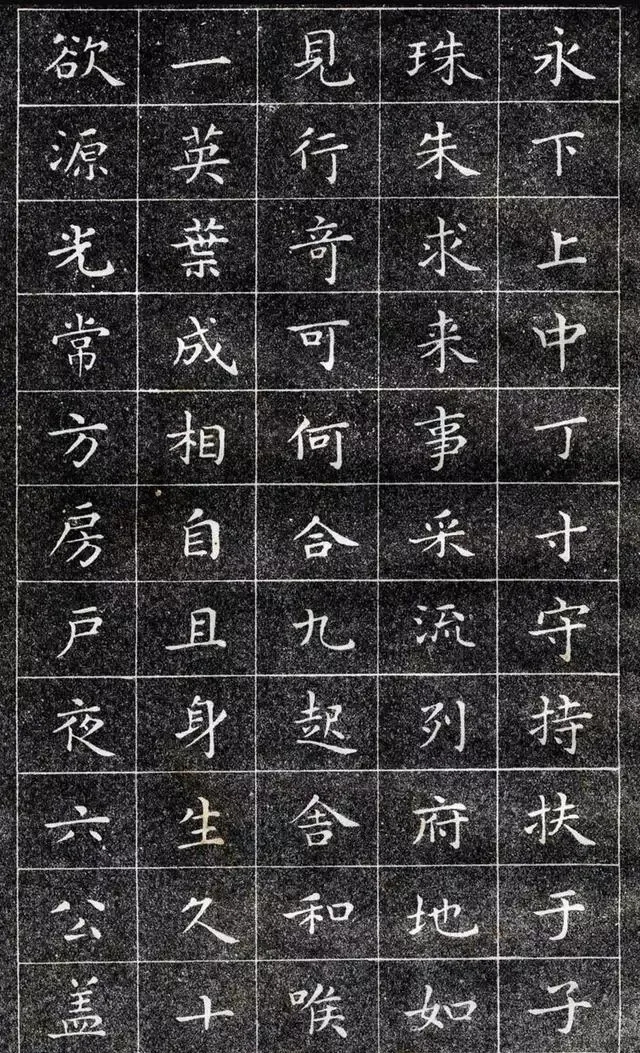 永下上中丁寸守持扶于子
珠朱求来事采流列府地如
見行竒可何合九起舍和喉
一英葉成相自且身生久十
欲源光常方房戶夜六公盖